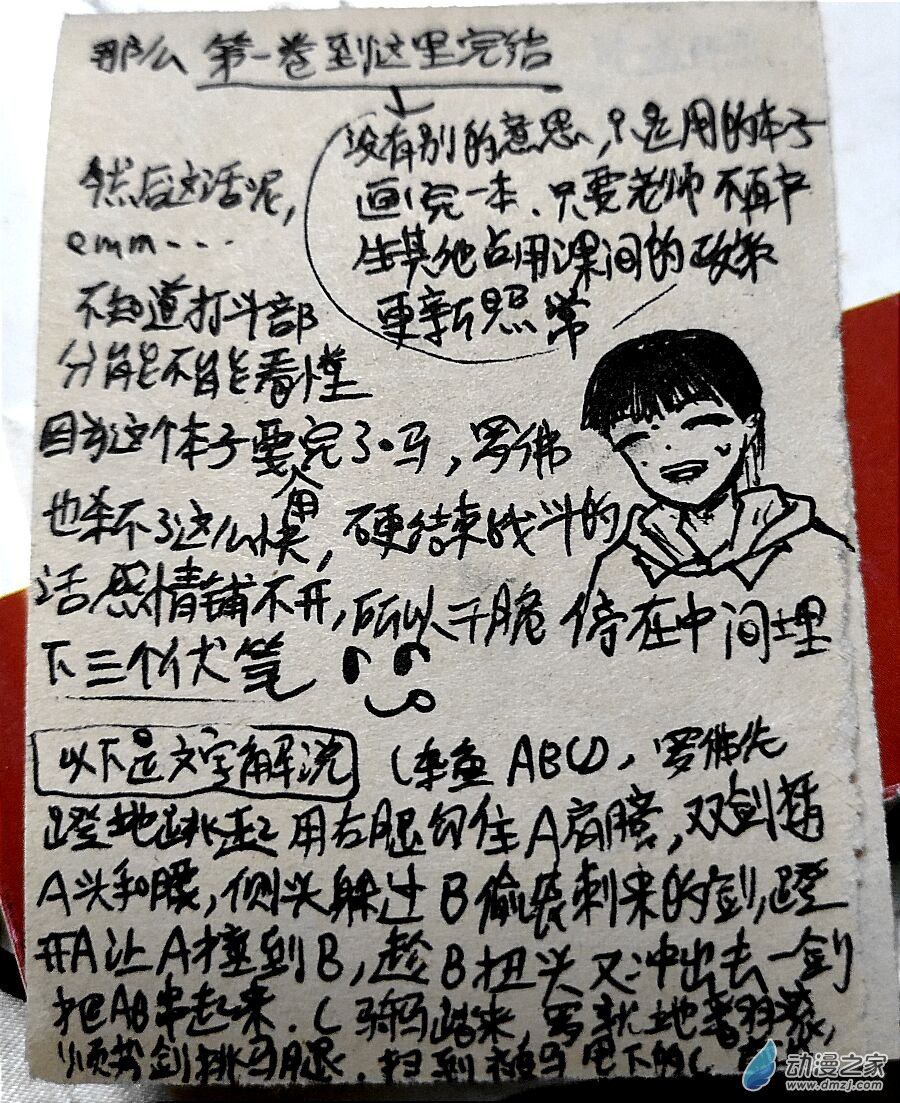 那么 第一卷到这里完结
没有别的意思，只是用的本子
画完一本．只要老师不再产
生其他占用课间的政策
更新照常
然后这话呢，
emm····
不知道打斗部
分能不能看懂
因为这个本子要用完了吗，罗佛
也杀不了这么快，硬结束战斗的
话感情铺不开，所以干脆停在中间埋
下三个伏笔
以下是文字解说（杂鱼ABC），罗佛先
蹬地跳起用右腿勾住A肩膀，双剑插
A头和腰，侧头躲过B偷袭刺来的剑，蹬
开A让A撞到B，趁B扭头又冲出去一剑
把AB串起来．C骑马踏来，罗就地翻滚，
顺势剑挑马腿．扫到 被马甩下的C
动漫之家
www.dmzj.com